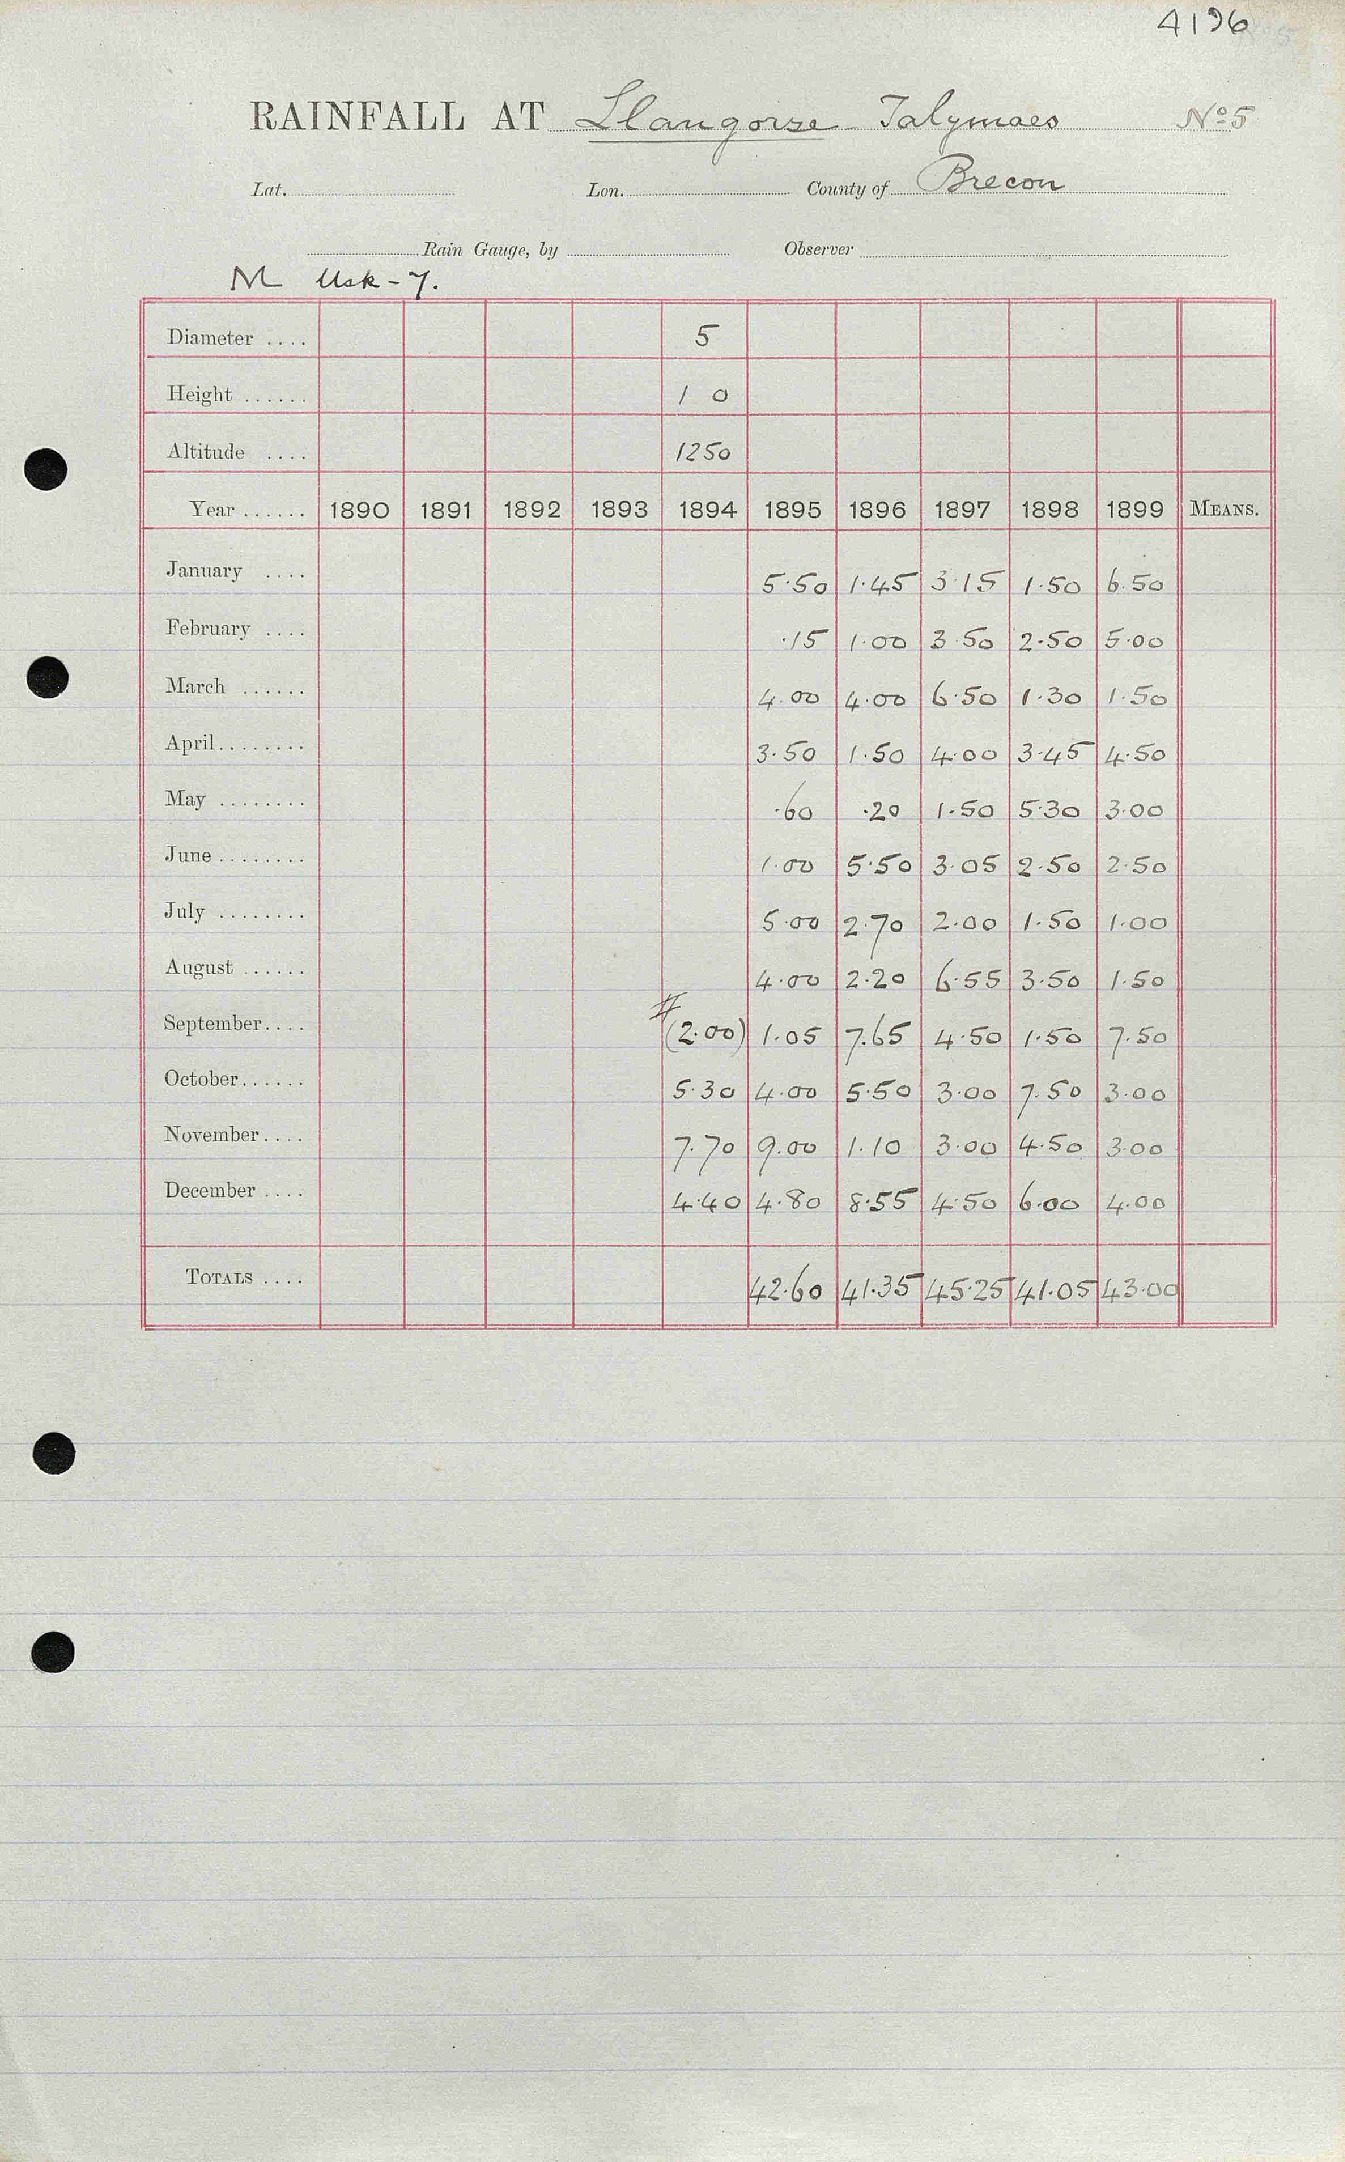 4196
RAINFALL AT Llangorse Talymaes Nº 5
Lat. Lon. County of Brecon
Rain Gauge, by Observer
M Usk - 7.
Diameter .... 5
Height ...... 1 0
Altitude .... 1250
Year ...... 1890 1891 1892 1893 1894 1895 1896 1897 1898 1899 MEANS.
January .... 5.50 1.45 3.15 1.50 6.50
February .... .15 1.00 3.50 2.50 5.00
March ...... 4.00 4.00 6.50 1.30 1.50
April........ 3.50 1.50 4.00 3.45 4.50
May ........ .60 .20 1.50 5.30 3.00
June ........ 1.00 5.50 3.05 2.50 2.50
July ........ 5.00 2.70 2.00 1.50 1.00
August ...... 4.00 2.20 6.55 3.50 1.50
September.... # (2.00) 1.05 7.65 4.50 1.50 7.50
October...... 5.30 4.00 5.50 3.00 7.50 3.00
November.... 7.70 9.00 1.10 3.00 4.50 3.00
December .... 4.40 4.80 8.55 4.50 6.00 4.00
TOTALS .... 42.60 41.35 45.25 41.05 43.00